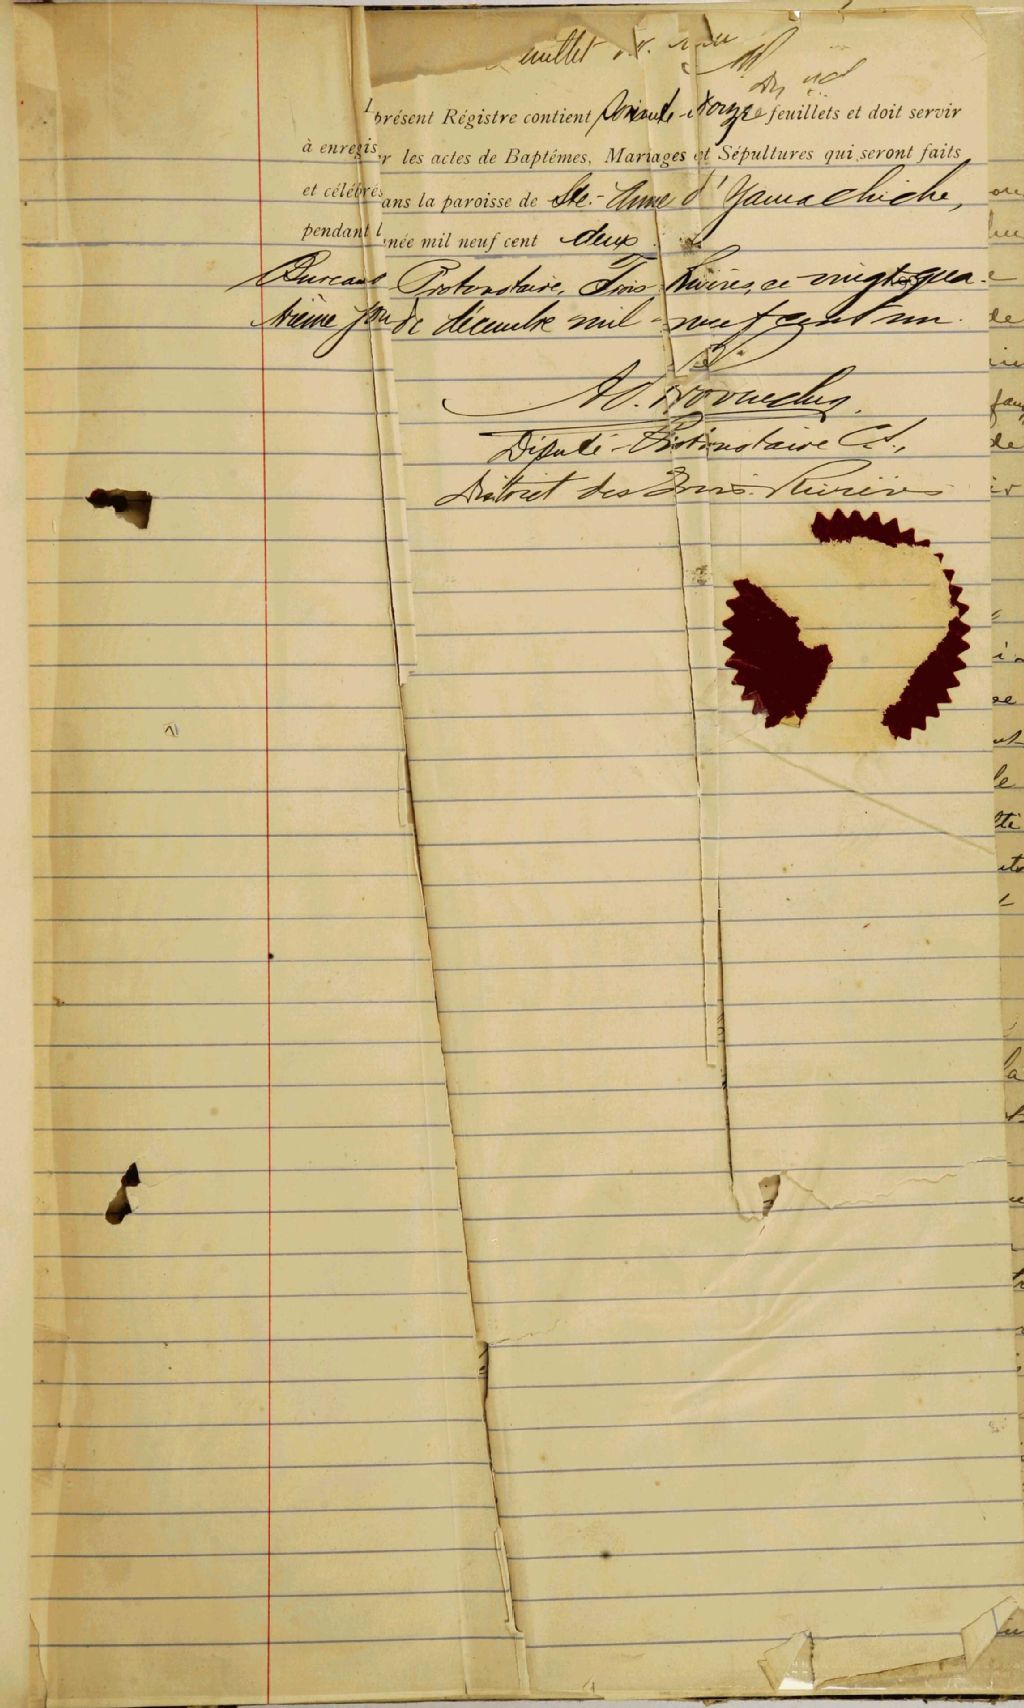 feuillet
présent Régistre contient soixante-et-onze feuillets et doit servir
à enregistrer les actes de Baptêmes, Mariages et Sépultures qui seront faits
et célébrés dans la paroisse de Ste-Anne d'Yamachiche,
pendant l'année mil neuf cent deux
Bureau Protonotaire, Trois-Rivières, ce vingt-qua-
trième jour de décembre mil-neuf cent un.
Député-Protonotaire C.S.,
District des Trois-Rivières